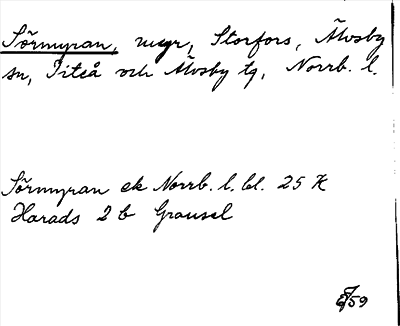 Sörmyran, myr, Storfors, Älvsby
sn, Piteå och Älvsby tg, Norrb. l.
Sörmyran ek Norrb. l. bl. 25 K
Harads 2 b Gransel
59